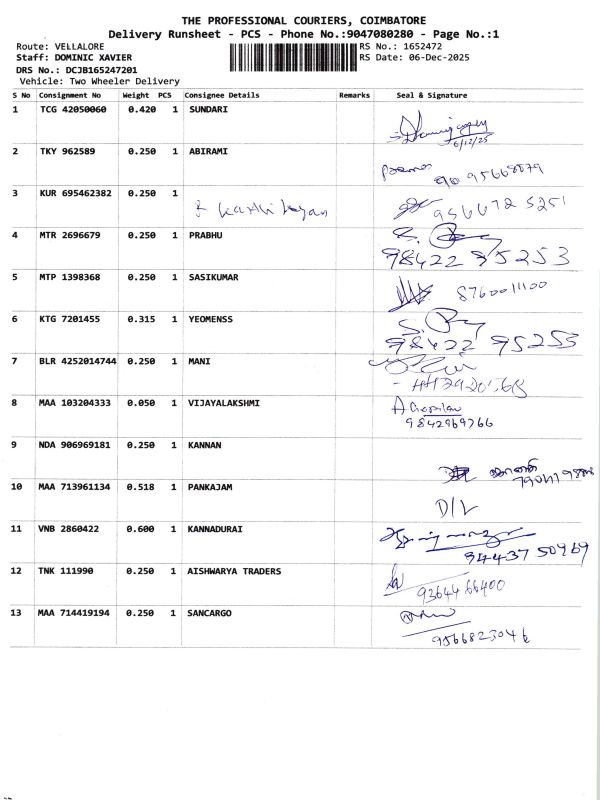 THE PROFESSIONAL COURIERS, COIMBATORE
Delivery Runsheet - PCS - Phone No.:9047080280 - Page No.:1
Route: VELLALORE RS No.: 1652472
Staff: DOMINIC XAVIER RS Date: 06-Dec-2025
DRS No.: DCJB165247201
Vehicle: Two Wheeler Delivery
S No Consignment No Weight PCS Consignee Details Remarks Seal & Signature
1 TCG 42050060 0.420 1 SUNDARI
6/12/25
2 TKY 962589 0.250 1 ABIRAMI
3 KUR 695462382 0.250 1
956672 5251
4 MTR 2696679 0.250 1 PRABHU
98422 95253
5 MTP 1398368 0.250 1 SASIKUMAR
8760011100
6 KTG 7201455 0.315 1 YEOMENSS
98422 95253
7 BLR 4252014744 0.250 1 MANI
8 MAA 103204333 0.050 1 VIJAYALAKSHMI
9842969766
9 NDA 906969181 0.250 1 KANNAN
10 MAA 713961134 0.518 1 PANKAJAM
D/L
11 VNB 2860422 0.600 1 KANNADURAI
94437 50969
12 TNK 111990 0.250 1 AISHWARYA TRADERS
9364466400
13 MAA 714419194 0.250 1 SANCARGO
9566823046